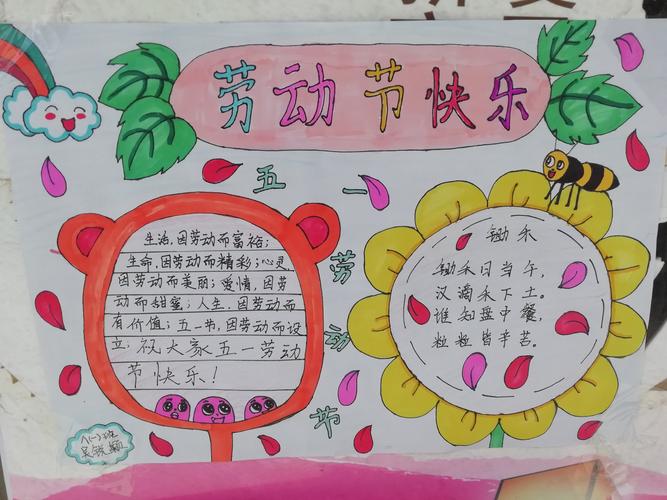 劳动节快乐
五一劳动节
生活，因劳动而富裕；
生命，因劳动而精彩；心灵
因劳动而美丽；爱情，因劳
动而甜蜜；人生，因劳动而
有价值；五一节，因劳动而设
立；祝大家五一劳动
节快乐！
锄禾
锄禾日当午，
汉滴禾下土。
谁知盘中餐，
粒粒皆辛苦。
八(一)班